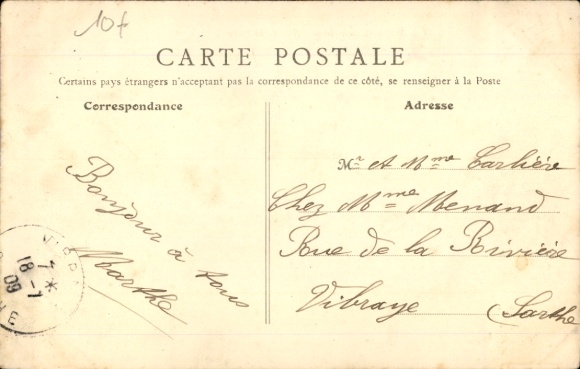 10f
CARTE POSTALE
Certains pays étrangers n'acceptant pas la correspondance de ce côté, se renseigner à la Poste
Correspondance
Adresse
Bonjour à tous
Marthe
Mr et Mme Carlière
Chez Mme Menand
Rue de la Rivière
Vibraye (Sarthe
7 *
18 -7
09
E